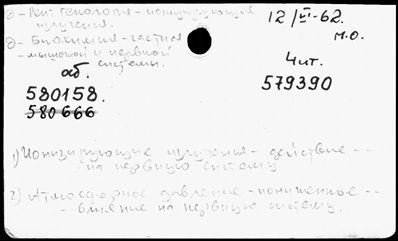 - Рентгенология - ионизирующие излучения.
- Биохимия - частная
- мышечной и нервной системы.
12/VI-62.
м.о.
аб.
580158.
580666
Чит.
579390
1) Ионизирующие излучения - действие - -
на нервную систему
2) Атмосферное давление - пониженное - -
- - влияние на нервную систему.